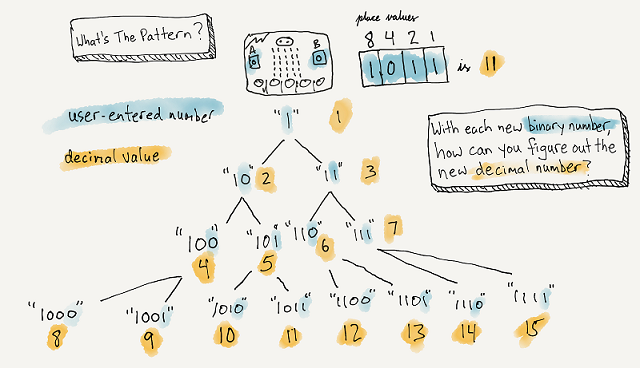 What's The Pattern?
A B
place values
8 4 2 1
1 0 1 1 is 11
user-entered number
decimal value
"1" 1
With each new binary number,
how can you figure out the
new decimal number?
"10" 2 "11" 3
"100" "101" "110" "111" 7
4 5 6
"1000" "1001" "1010" "1011" "1100" "1101" "1110" "1111"
8 9 10 11 12 13 14 15